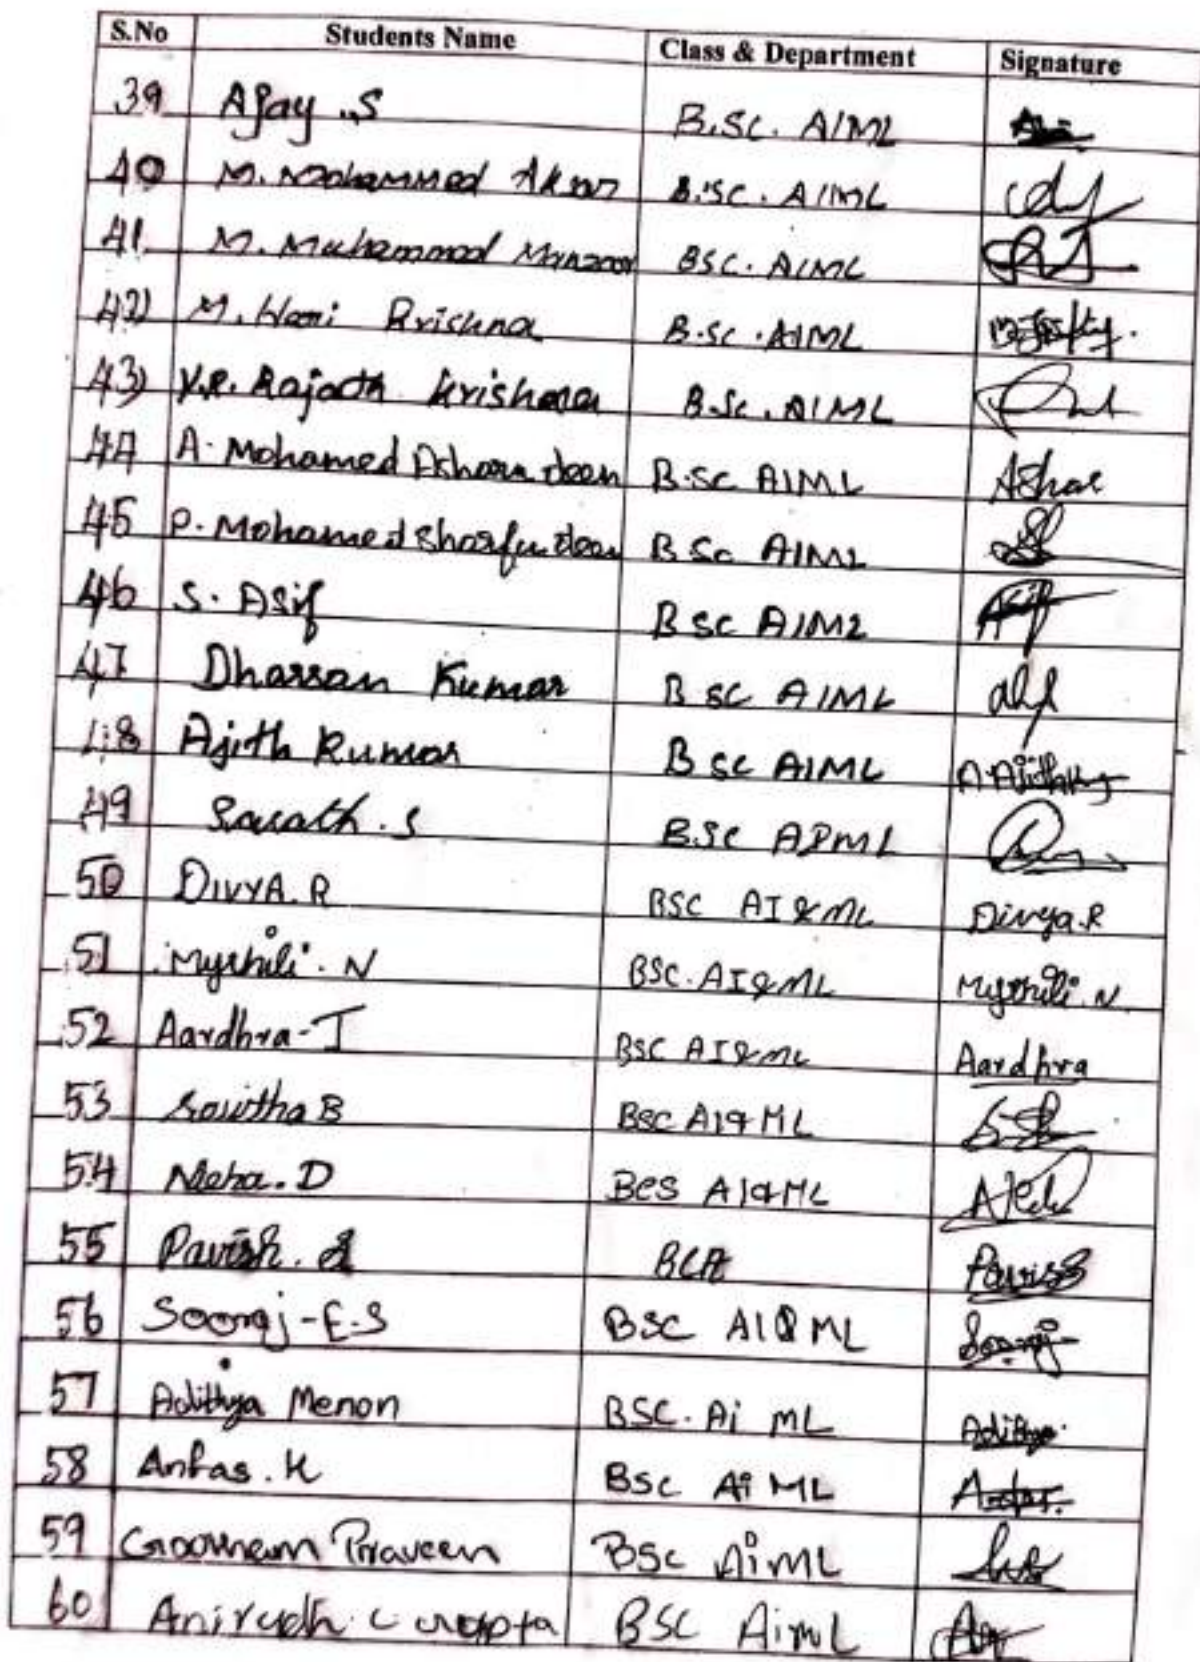 S.No Students Name Class & Department Signature
39 Ajay .S B.Sc. AIML
40 M. Mohammed B.Sc. AIML
41 M. Muhammad Manzoor BSC. AIML
42) M. Hari Krishna B.Sc. AIML
43) V.R. Rajath Krishna B.Sc. AIML
44 A. Mohamed Asharudeen B.Sc AIML Ashar
45 P. Mohamed Sharfudeen B Sc AIML
46 S. Asif B SC AIML Asif
47 Dharsan Kumar B SC AIML
48 Ajith Kumar B SC AIML
49 Sarath. S B.SC AIML
50 DIVYA. R BSC AI&ML Divya.R
51 Mythili. N BSC. AI&ML Mythili. N
52 Aardhra-J BSC AI&ML Aardhra
53 B BSC AI&ML
54 Neha. D BCS AI&ML
55 Pavish. BCA
56 Sooraj-E.S BSC AI&ML Sooraj
57 Adithya Menon BSC. Ai ML Adithya
58 Anfas. K BSC Ai ML
59 Praveen BSC AiML
60 Anirudh BSC AiML